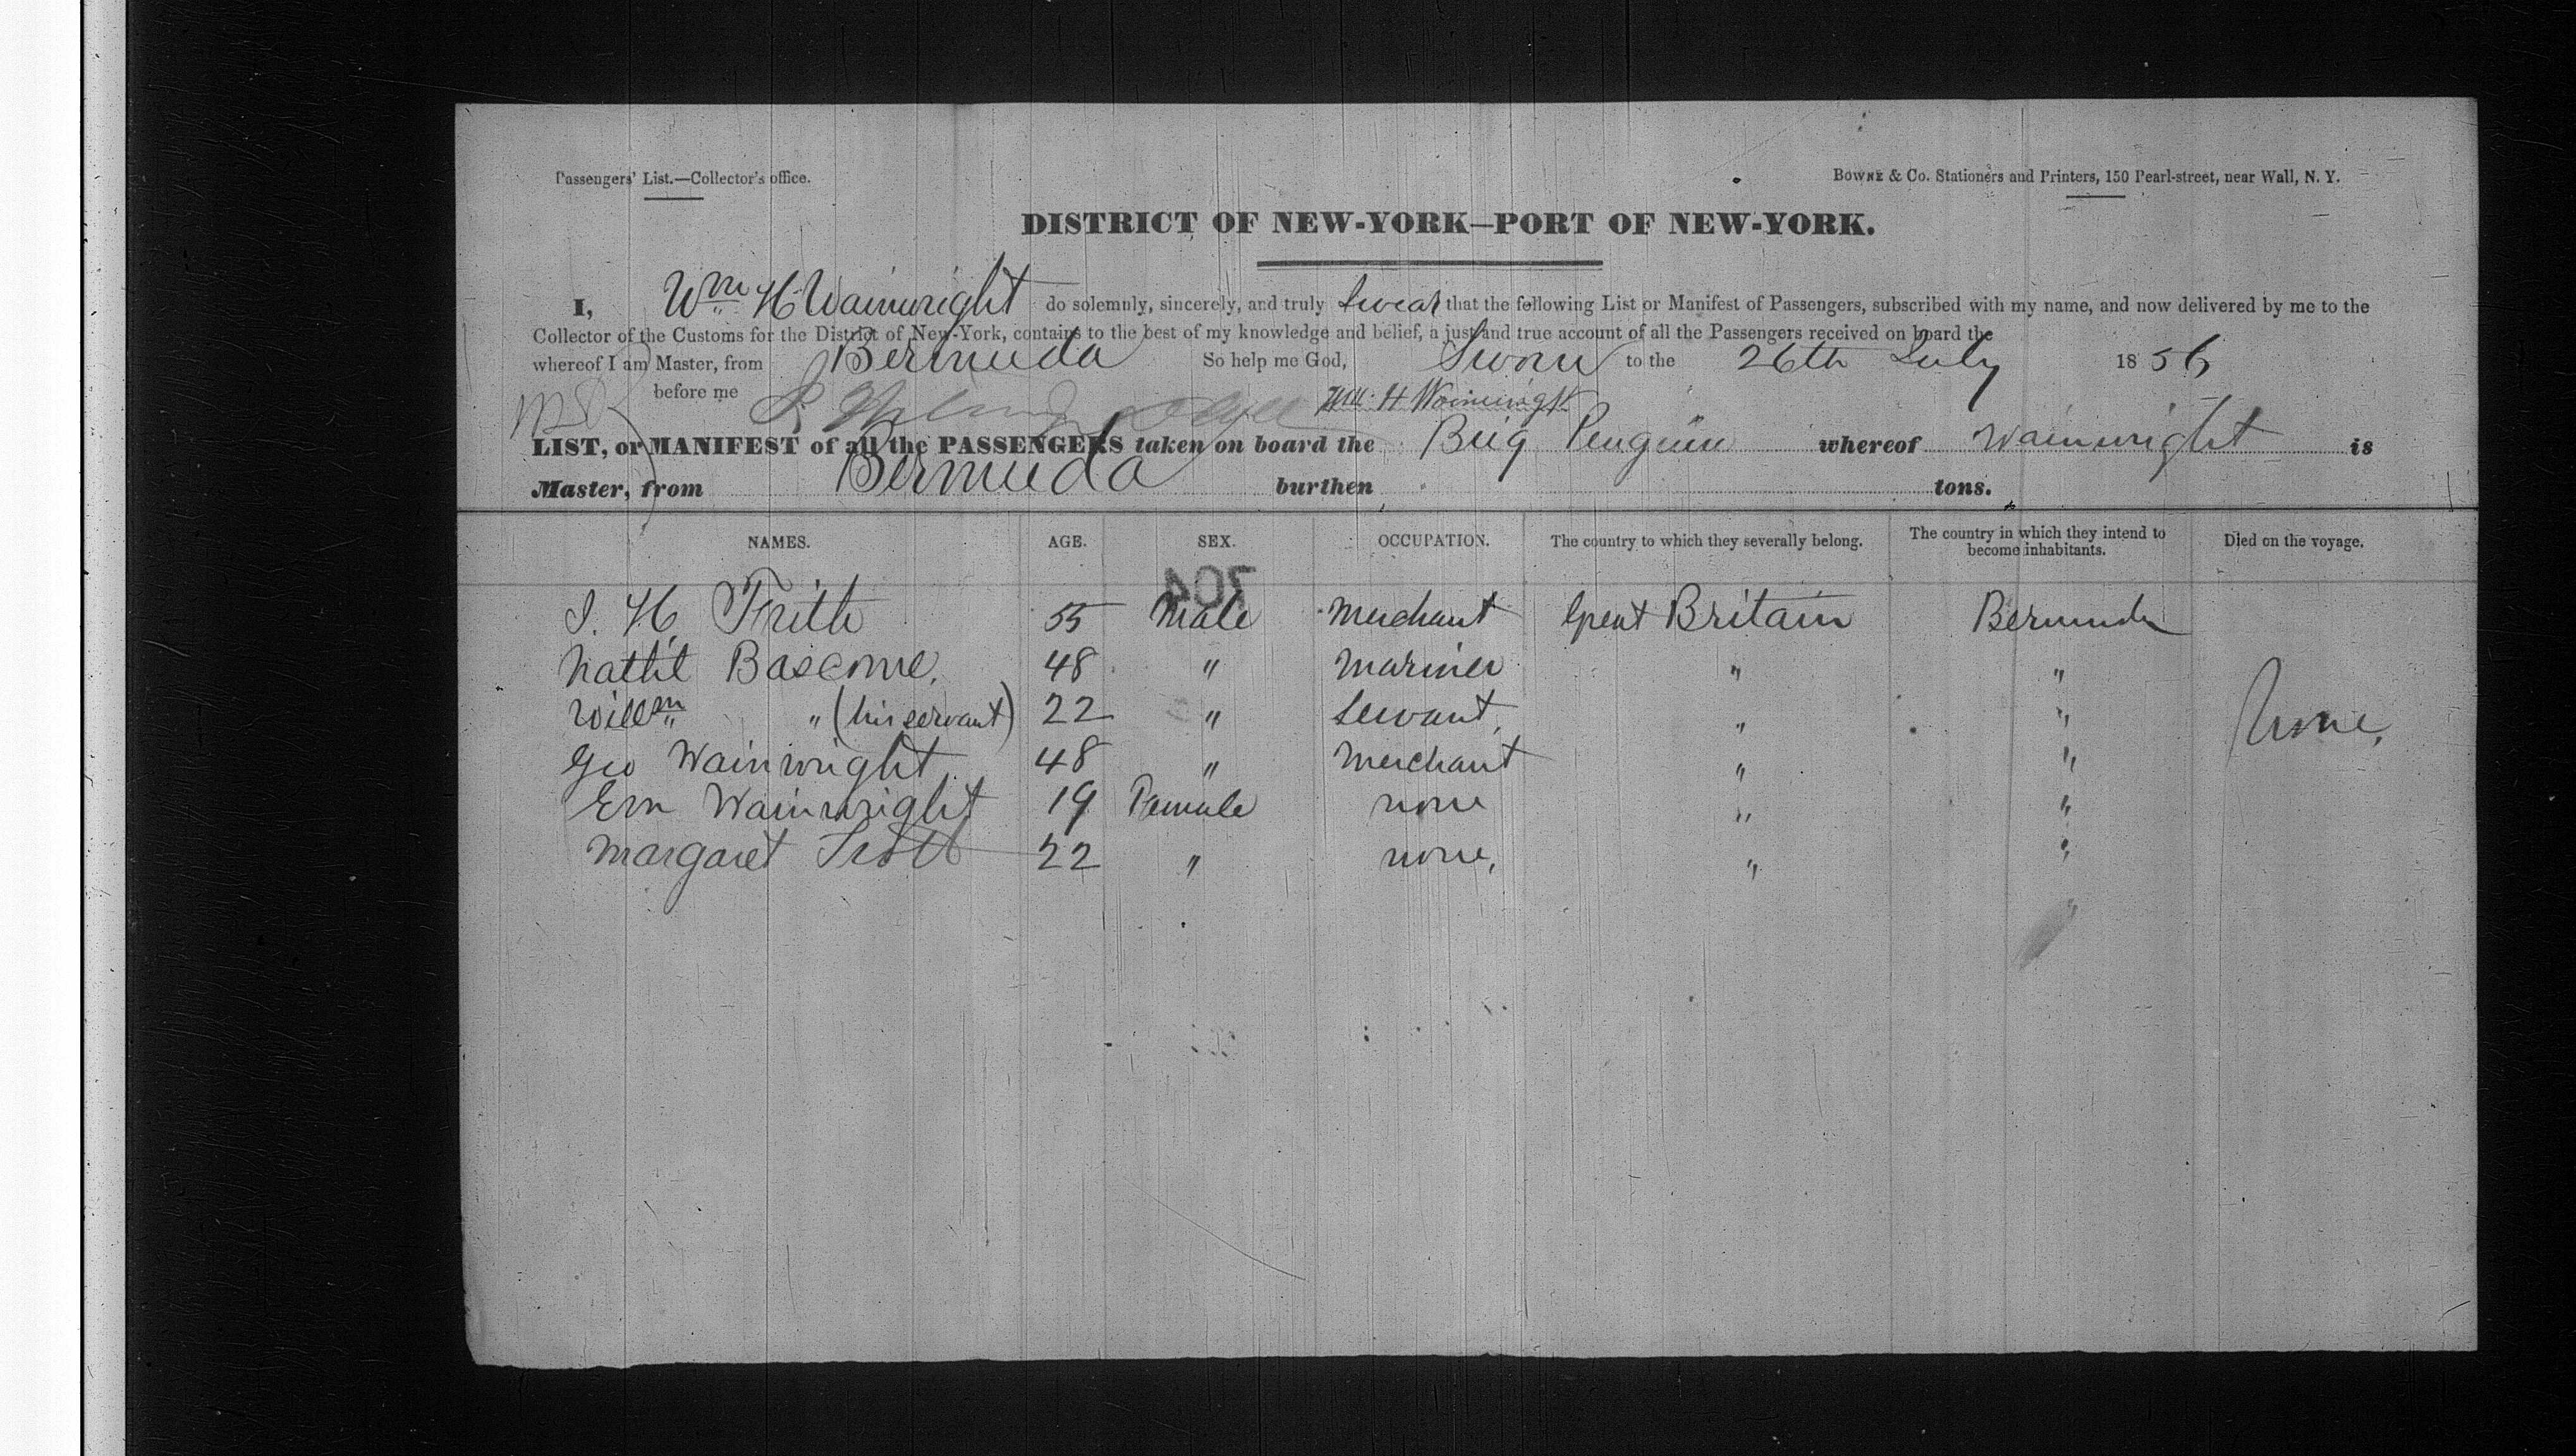 Passengers' List.—Collector's office.
BOWNE & Co. Stationers and Printers, 150 Pearl-street, near Wall, N. Y.
DISTRICT OF NEW-YORK—PORT OF NEW-YORK.
I, Wm H Wainwright do solemnly, sincerely, and truly swear that the following List or Manifest of Passengers, subscribed with my name, and now delivered by me to the
Collector of the Customs for the District of New-York, contains to the best of my knowledge and belief, a just and true account of all the Passengers received on board the
whereof I am Master, from Bermuda So help me God, Sworn to the 26th July 1856
before me Wm H Wainwright
LIST, or MANIFEST of all the PASSENGERS taken on board the Brig Penguin whereof Wainwright is
Master, from Bermuda burthen tons.
NAMES. AGE. SEX. OCCUPATION. The country to which they severally belong. The country in which they intend to become inhabitants. Died on the voyage.
704
S. H. Frith 55 Male Merchant Great Britain Bermuda
Nathl Bascome. 48 " Mariner " "
Willm " (his servant) 22 " Servant, " " None.
Geo Wainwright 48 " Merchant " "
Em Wainwright 19 Female none " "
Margaret Trott 22 " none, " "